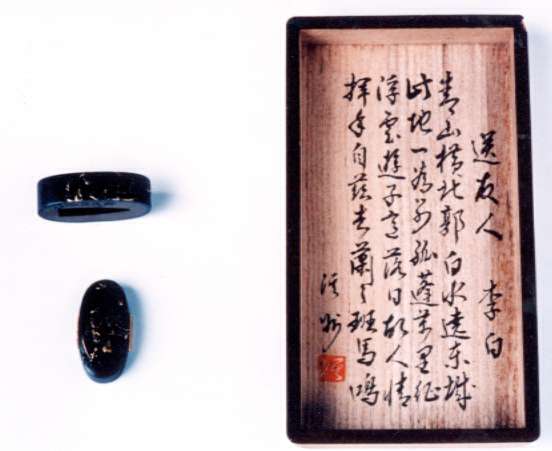 送友人 李白
青山横北郭白水遶東城
此地一為別孤蓬萬里征
浮雲遊子意落日故人情
揮手自茲去蕭〻班馬鳴